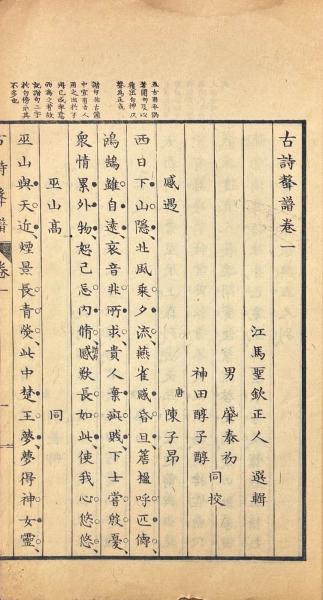 古詩聲譜卷一
江馬聖欽正人 選輯
男 肇泰初
神田醇子醇 同挍
感遇 唐 陳子昂
西日下山隱北風乘夕流燕雀感昏旦簷楹呼匹儔
鴻鵠雖自遠哀音非所求貴人棄疵賤下士嘗殷憂
衆情累外物恕己忘內脩感歎長如此使我心悠悠
巫山高 同
巫山與天近煙景長青熒此中楚王夢夢得神女靈
古詩聲譜 卷一